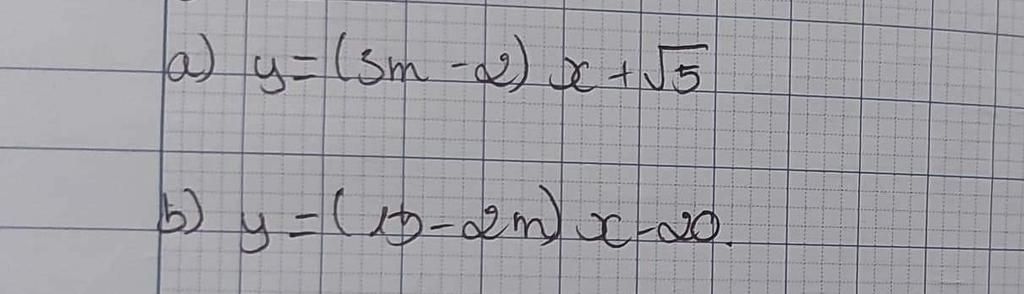 a) y = (3m - 2) x + √5
b) y = (15 - 2m) x - 20.